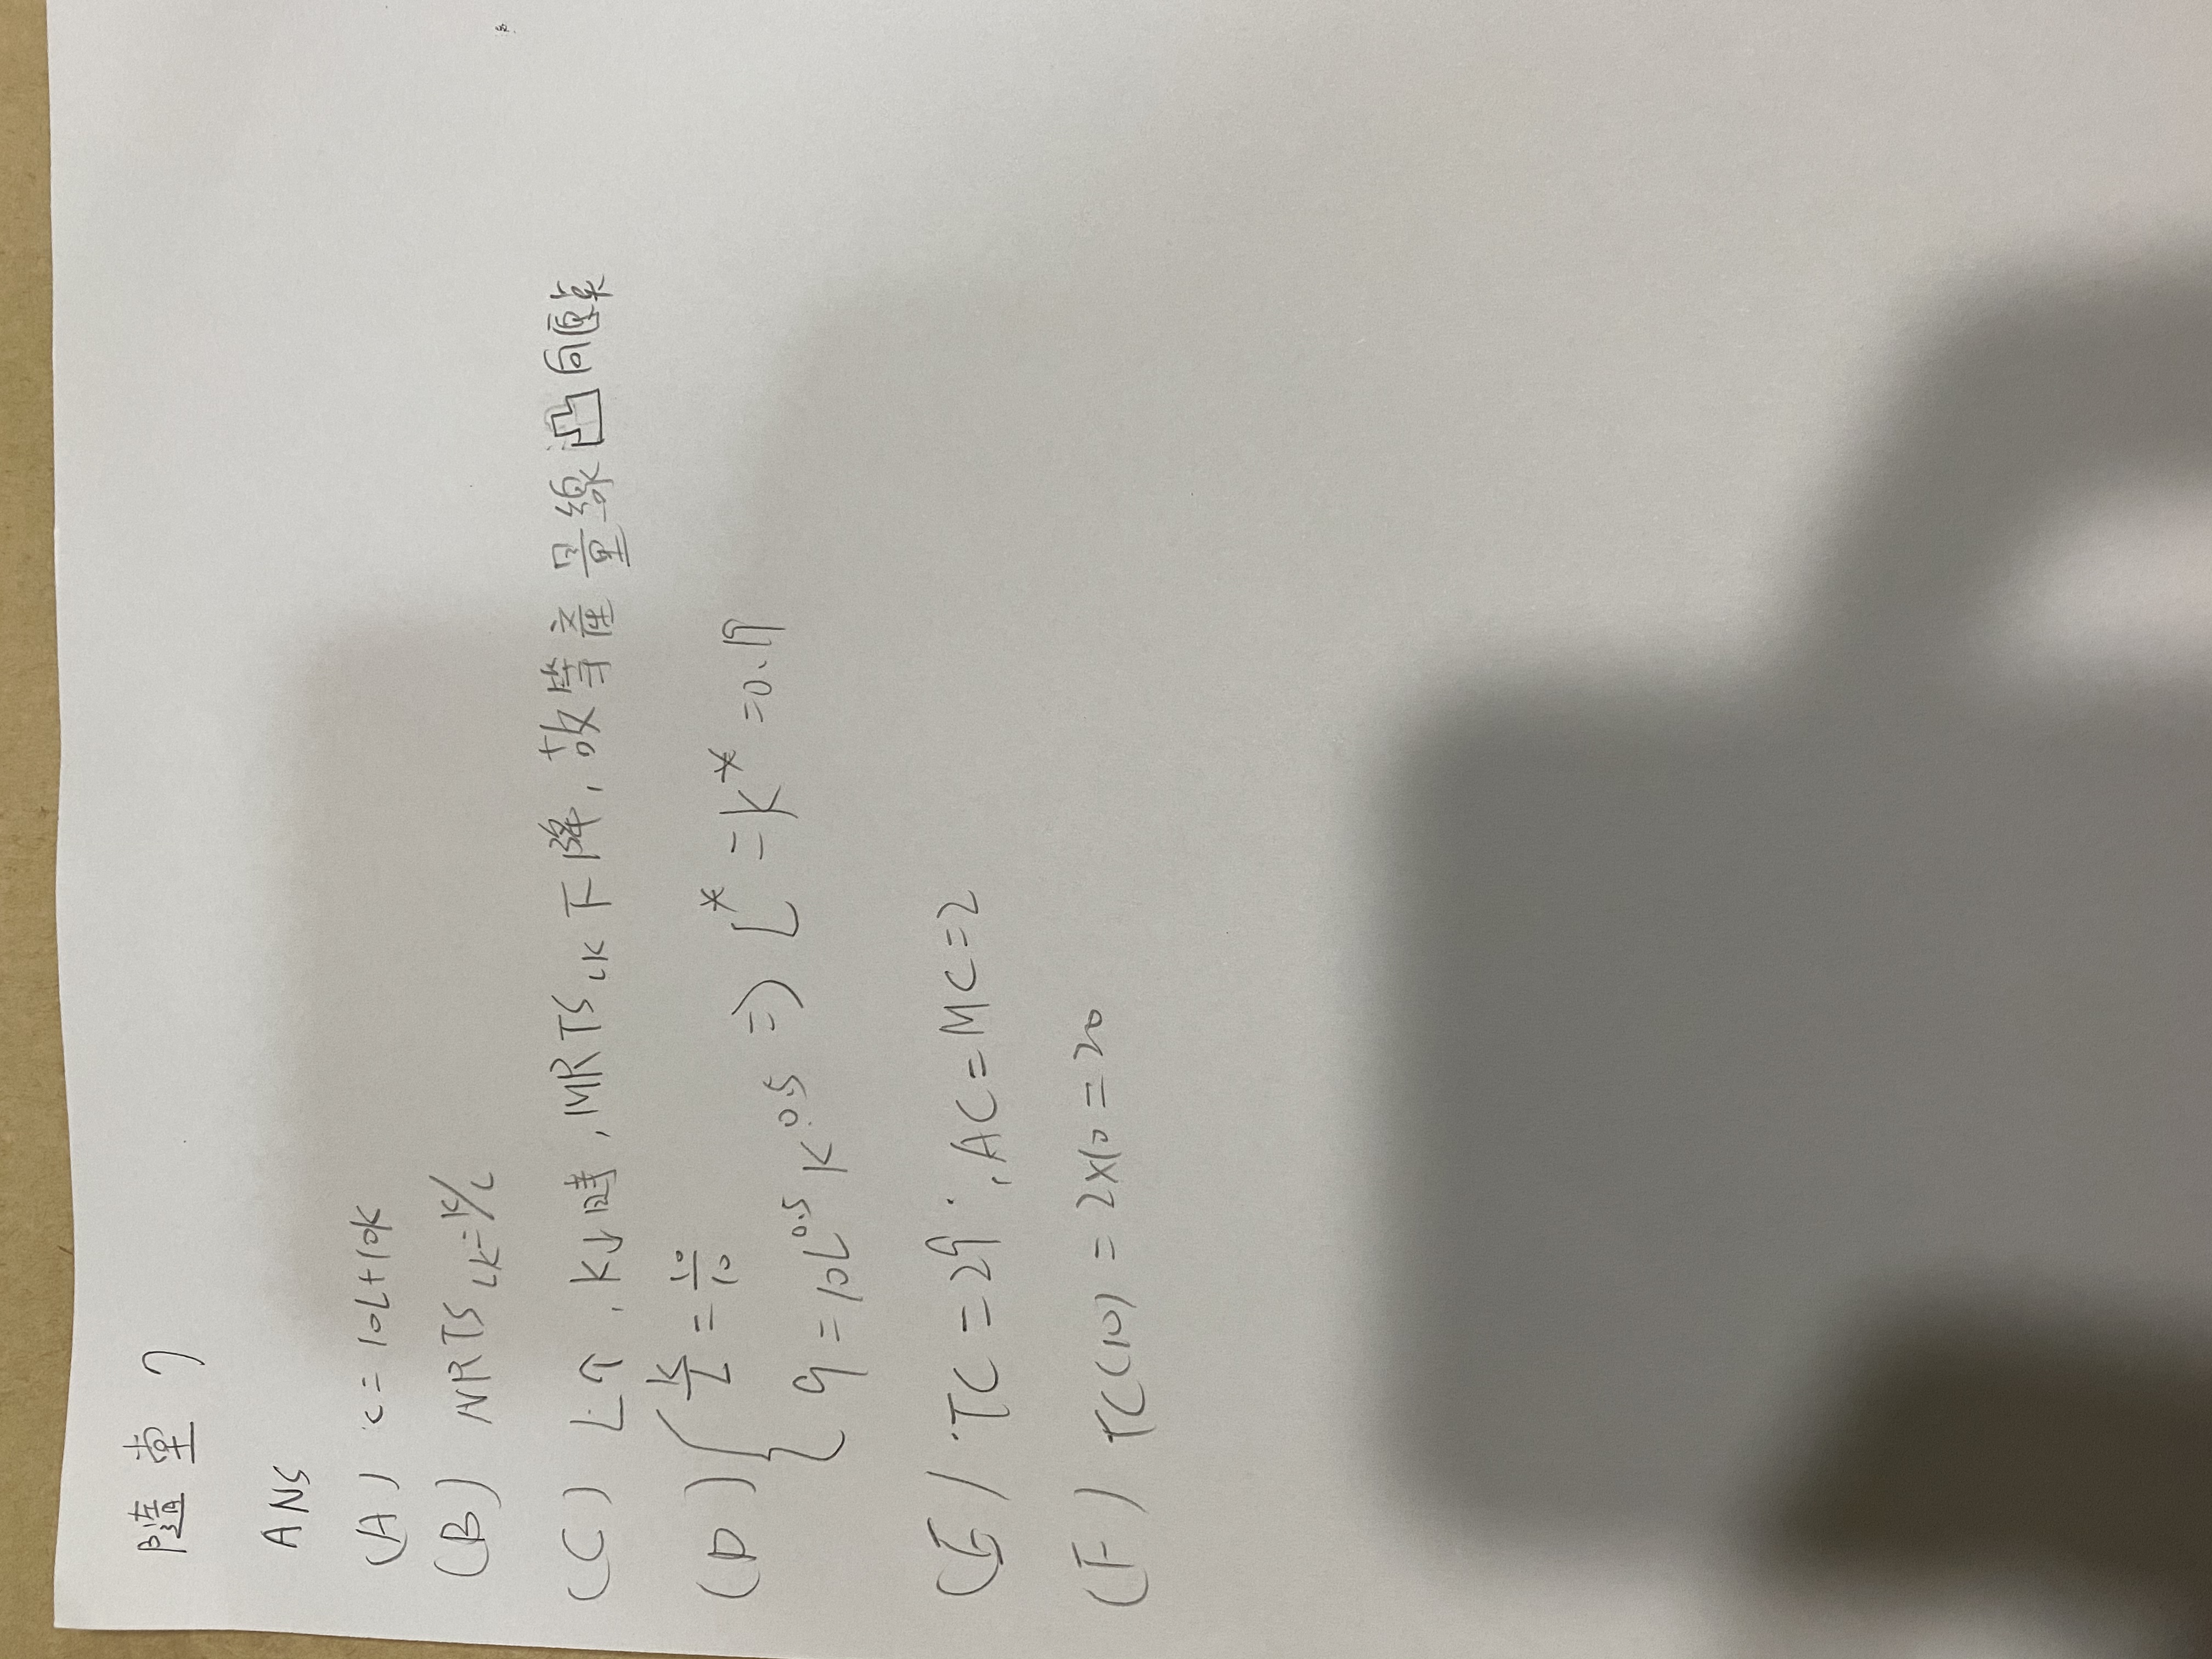 隨堂 7
ANS
(A) c = 10L+10K
(B) MRTS LK = K/L
(C) L↑, K↓時, MRTS LK 下降, 故等產量線凸向原點
(D) { K/L = 10/10
q = 10L^0.5 K^0.5 => L* = K* = 0.1q
(E) TC = 2q, AC = MC = 2
(F) TC(10) = 2x10 = 20